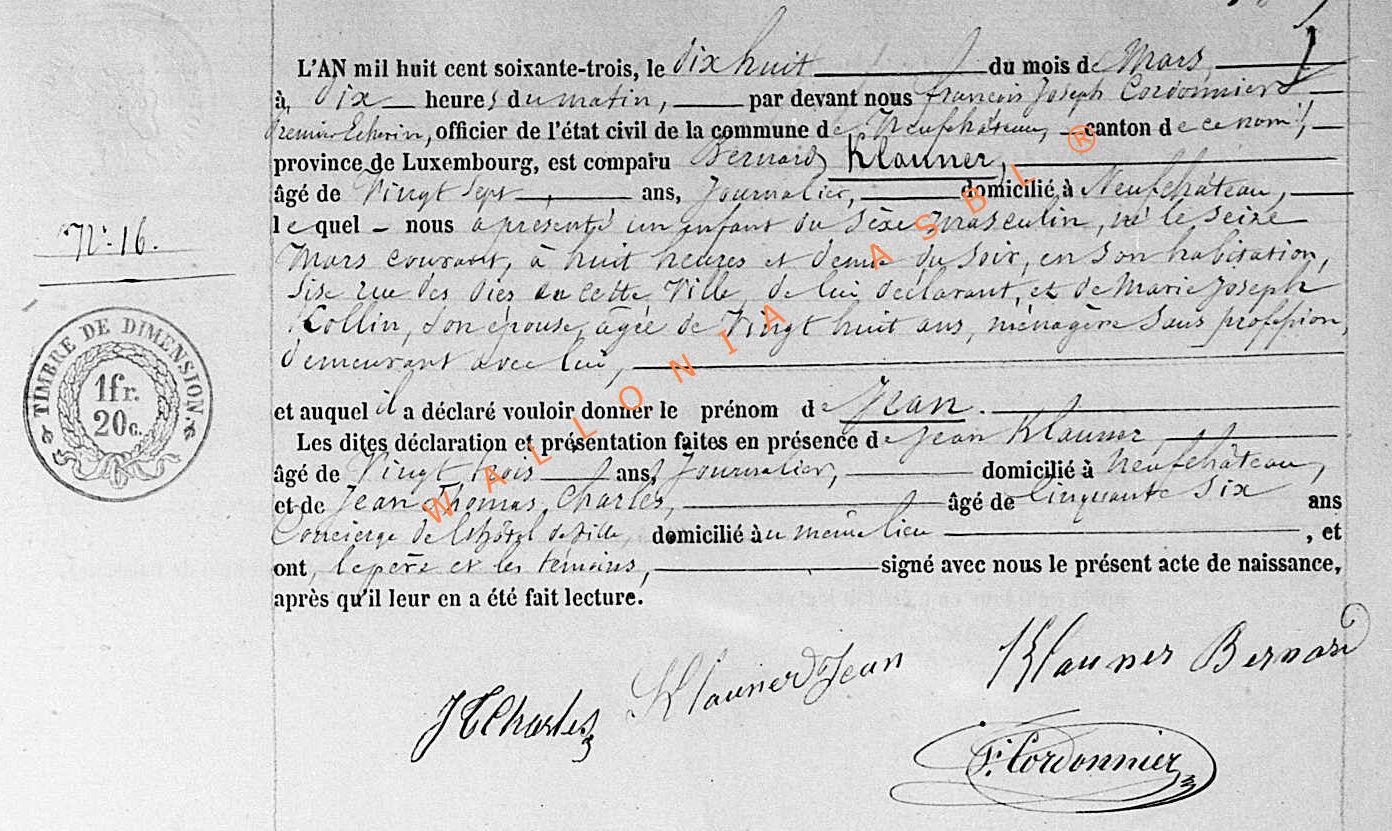 L'AN mil huit cent soixante-trois, le dix huit du mois de Mars,
à dix heures du matin, par devant nous François Joseph Cordonnier
Premier Echevin, officier de l'état civil de la commune de Neufchâteau, canton de ce nom,
province de Luxembourg, est comparu Bernard Klauner,
âgé de Vingt sept ans, Journalier, domicilié à Neufchâteau,
le quel nous a présenté un enfant du sèxe masculin, né le seize
Mars courant, à huit heures et demie du soir, en son habitation,
Sise rue des en cette Ville, de lui déclarant, et de Marie Joseph
Collin, son épouse, âgée de Vingt huit ans, ménagère sans profession,
demeurant avec lui,
N° 16.
TIMBRE DE DIMENSION
1fr.
20c.
et auquel il a déclaré vouloir donner le prénom de Jean.
Les dites déclaration et présentation faites en présence de Jean Klauner,
âgé de Vingt trois ans, Journalier, domicilié à Neufchâteau,
et de Jean Thomas Charles, âgé de Cinquante Six ans
Concierge de l'hôtel de ville, domicilié au même lieu , et
ont, le père et les témoins, signé avec nous le présent acte de naissance,
après qu'il leur en a été fait lecture.
JTCharles
Klauner Jean
Klauner Bernard
F. Cordonnier
WALLONIA ASBL ®